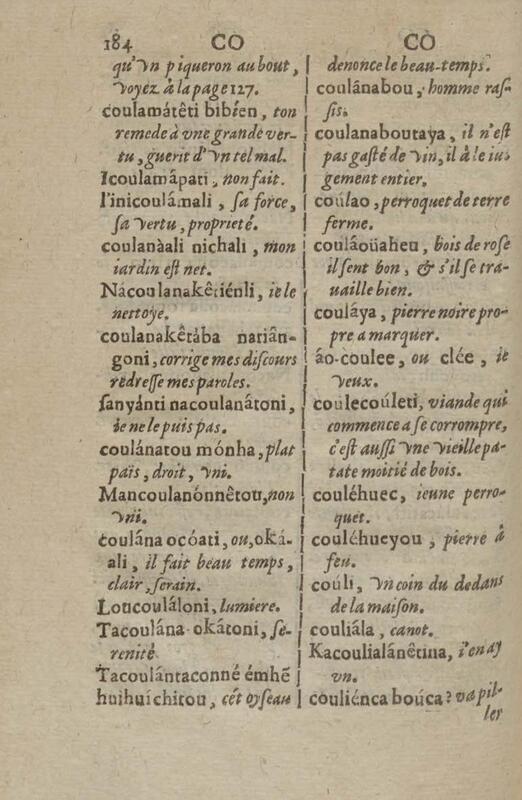 184 CO CO
qu'vn piqueron au bout,
voyez à la page 127.
coulamátêti bibíen, ton
remede à vne grande ver-
tu, guerit d'vn tel mal.
Icoulamâpati, non fait.
l'inicoulámali, sa force,
sa vertu, proprieté.
coulanàali nichali, mon
iardin est net.
Nácoulanakêtiénli, ie le
nettoye.
coulanakêtàba nariân-
goni, corrige mes discours
redresse mes paroles.
sanyánti nacoulanátoni,
ie ne le puis pas.
coulánatou mónha, plat
païs, droit, vni.
Mancoulanónnêtou, non
vni.
coulána ocóati, ou, oká-
ali, il fait beau temps,
clair, serain.
Loucoulâloni, lumiere.
Tacoulána okátoni, se-
renité
Tacoulántaconné émhẽ
huihuíchitou, cét oyseau
denonce le beau-temps.
coulânabou, homme ras-
sis.
coulanaboutaya, il n'est
pas gasté de vin, il à le iu-
gement entier.
coúlao, perroquet de terre
ferme.
coulâoüaheu, bois de rose
il sent bon, & s'il se tra-
uaille bien.
couláya, pierre noire pro-
pre a marquer.
áo-còulee, ou clée, ie
veux.
coùlecoúleti, viande qui
commence a se corrompre,
c'est aussi vne vieille pa-
tate moitié de bois.
couléhuec, ieune perro-
quet.
couléhueyou, pierre à
feu.
coúli, vn coin du dedans
de la maison.
couliála, canot.
Kacoulialánêtina, i'en ay
vn.
couliénca boúca? va pil-
ler